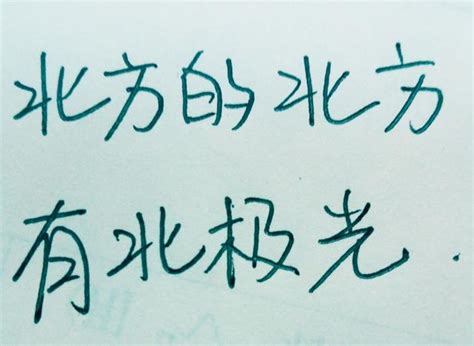 北方的北方
有北极光.